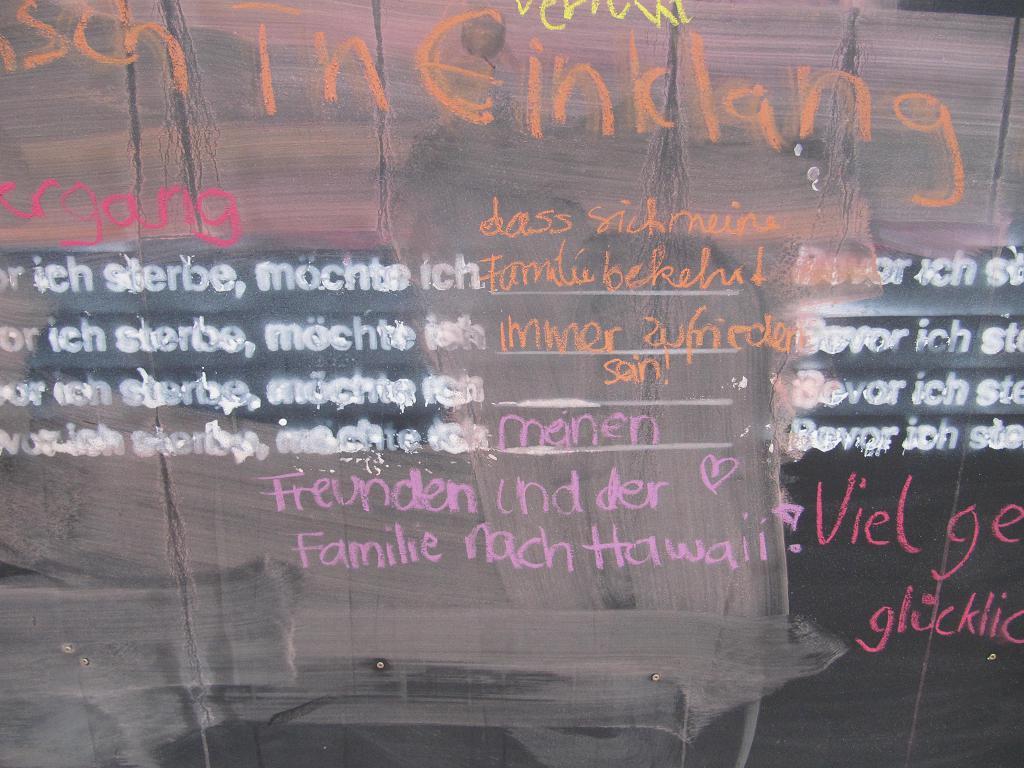 in Einklang
ergang
dass sich meine
or ich sterbe, möchte ich Familie bekehrt Bevor ich ste
or ich sterbe, möchte ich immer zufrieden Bevor ich ste
sein!
or ich sterbe, möchte ich Bevor ich ste
vor ich sterbe, möchte ich meinen Bevor ich ste
Freunden und der
Familie nach Hawaii!
Viel ge
glücklic